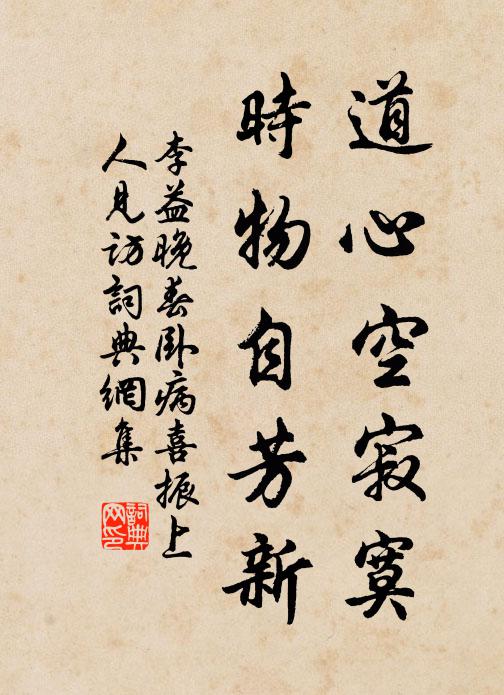 道心空寂寞
時物自芳新
李益晚春卧病喜振上
人見訪詞典網集
詞典網印